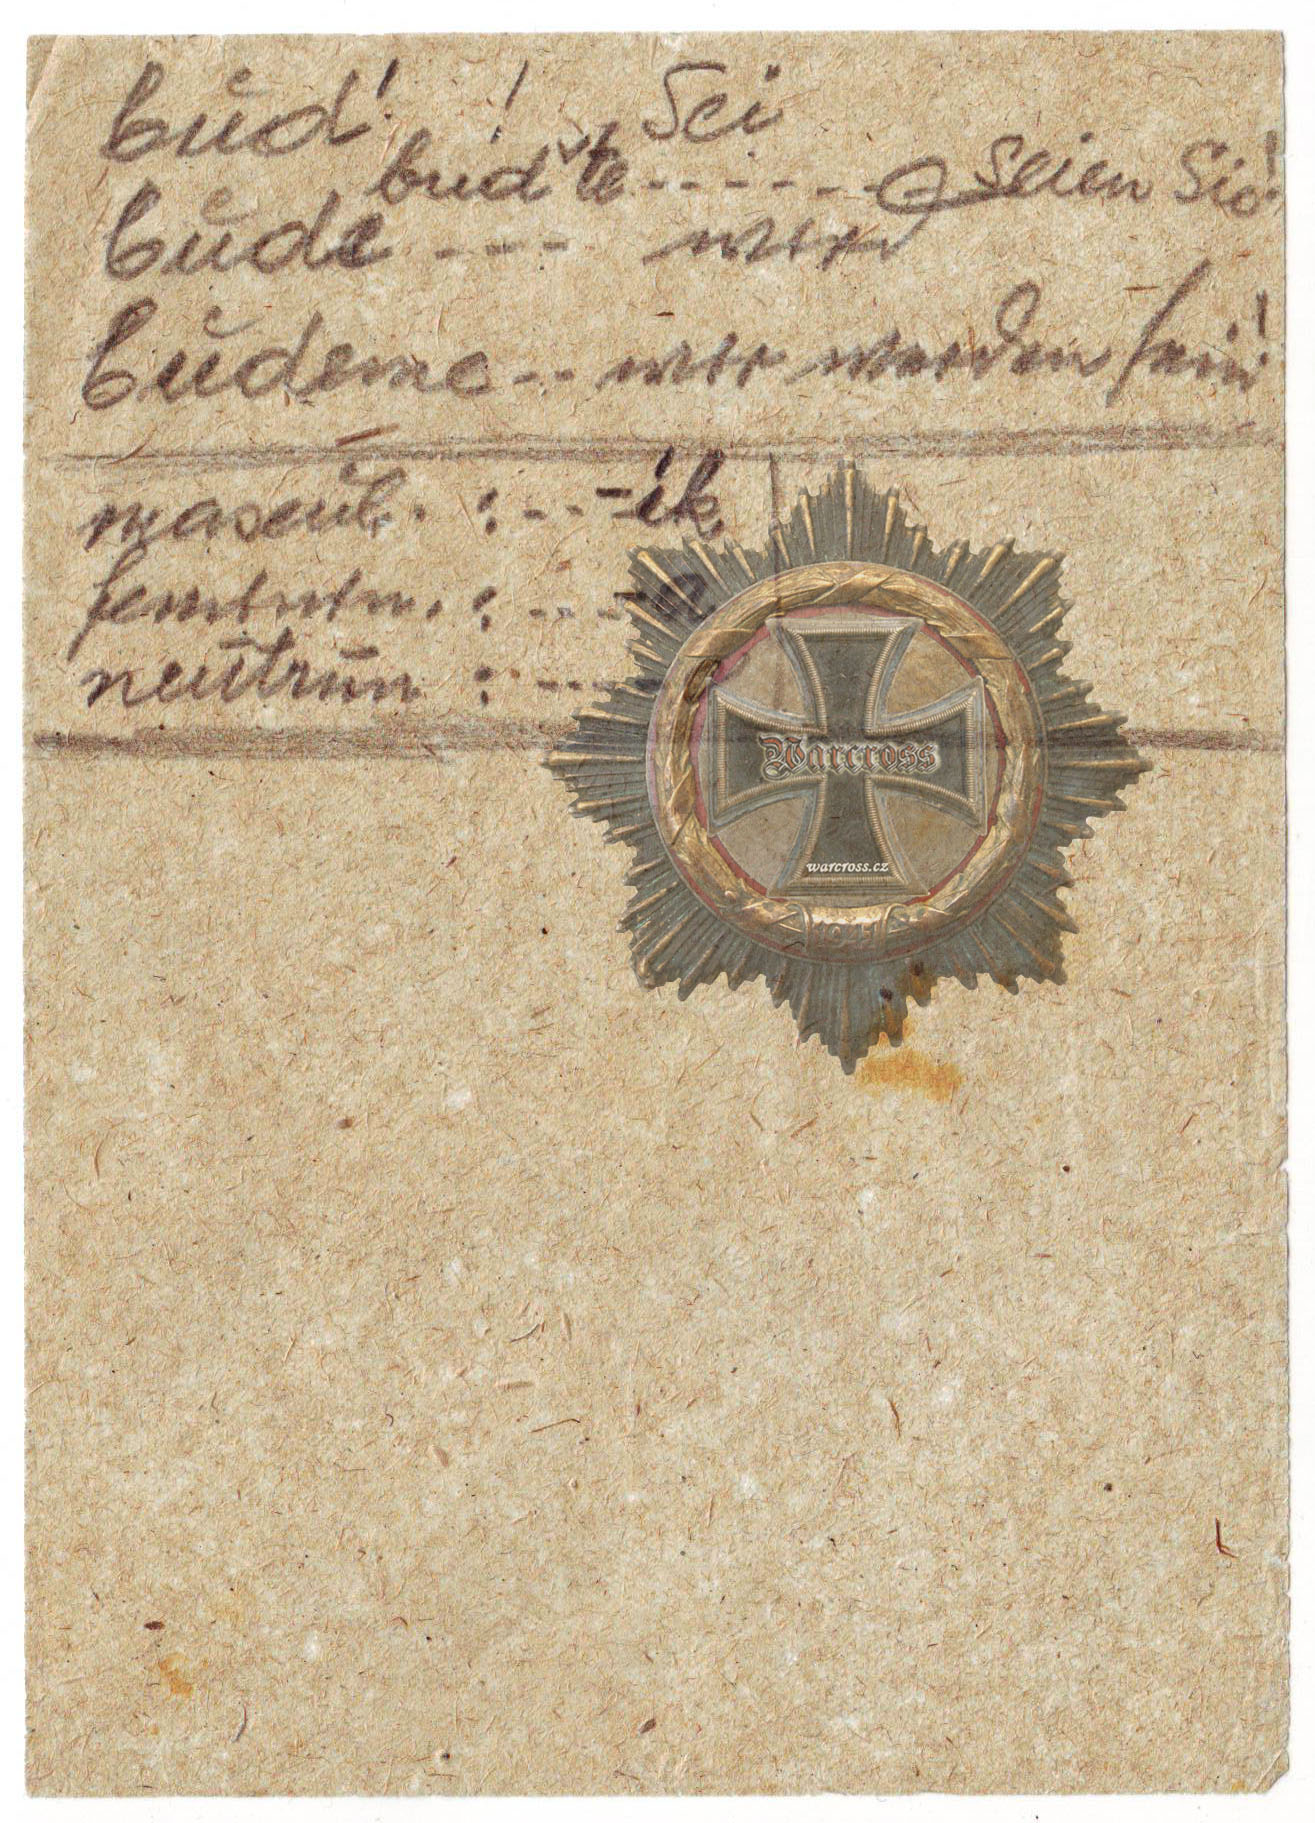 bŭď! ! Sei
buďte ------- seien Sie!
bŭde ---- wird
bŭdeme -- wir werden sein!
mascul. : --- -ík
feminin. : --- -a
neūtrūm : ---
Warcross
warcross.cz
1941